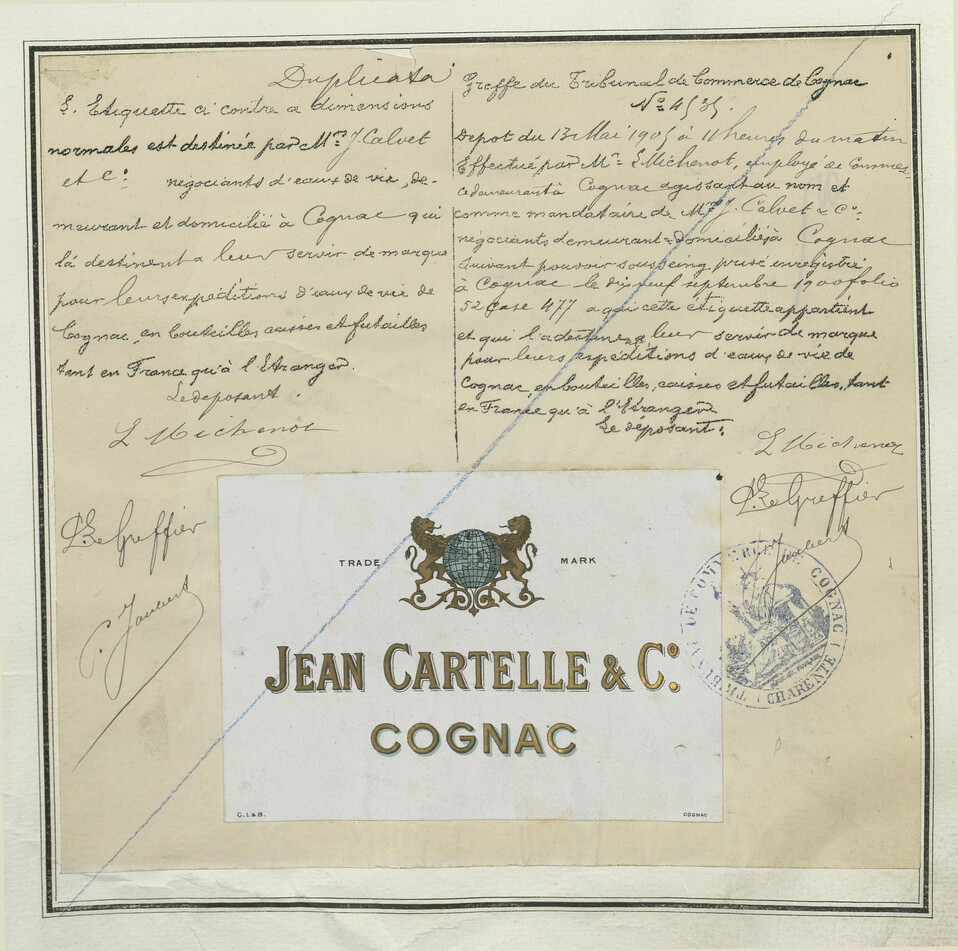 Duplicata
L'Etiquette ci contre a dimensions
normales est destinée par Mrs J. Calvet
et Co. négociants d'eaux de vie, de-
meurant et domicilié à Cognac qui
la destinent a leur servir de marque
pour leurs expéditions d'eaux de vie de
Cognac, en bouteilles caisses et futailles
tant en France qu'à l'Etranger.
Le deposant.
L Michenot
P. Le Greffier
P. Jaubert
Greffe du Tribunal de Commerce de Cognac
No 4535.
Depot du 13 Mai 1905 à 11 heures du matin
Effectué par Mr L Michenot, employé de Commer-
ce demeurant à Cognac agissant au nom et
comme mandataire de Mrs J. Calvet & Co.
négociants demeurant & domiciliés à Cognac
suivant pouvoir sousseing privé enregistré
à Cognac le dis neuf septembre 1900 folio
52 Case 477 a qui cette étiquette appartient
et qui l'a destinent a leur servir de marque
pour leurs expéditions d'eaux-de-vie de
Cognac, en bouteilles, caisses et futailles, tant
en France qu'à l'Etranger
Le déposant:
L Michenot
P. Le Greffier
Jaubert
TRIBUNAL DE COMMERCE DE COGNAC
(CHARENTE)
TRADE MARK
JEAN CARTELLE & Co.
COGNAC
G. L & B. COGNAC